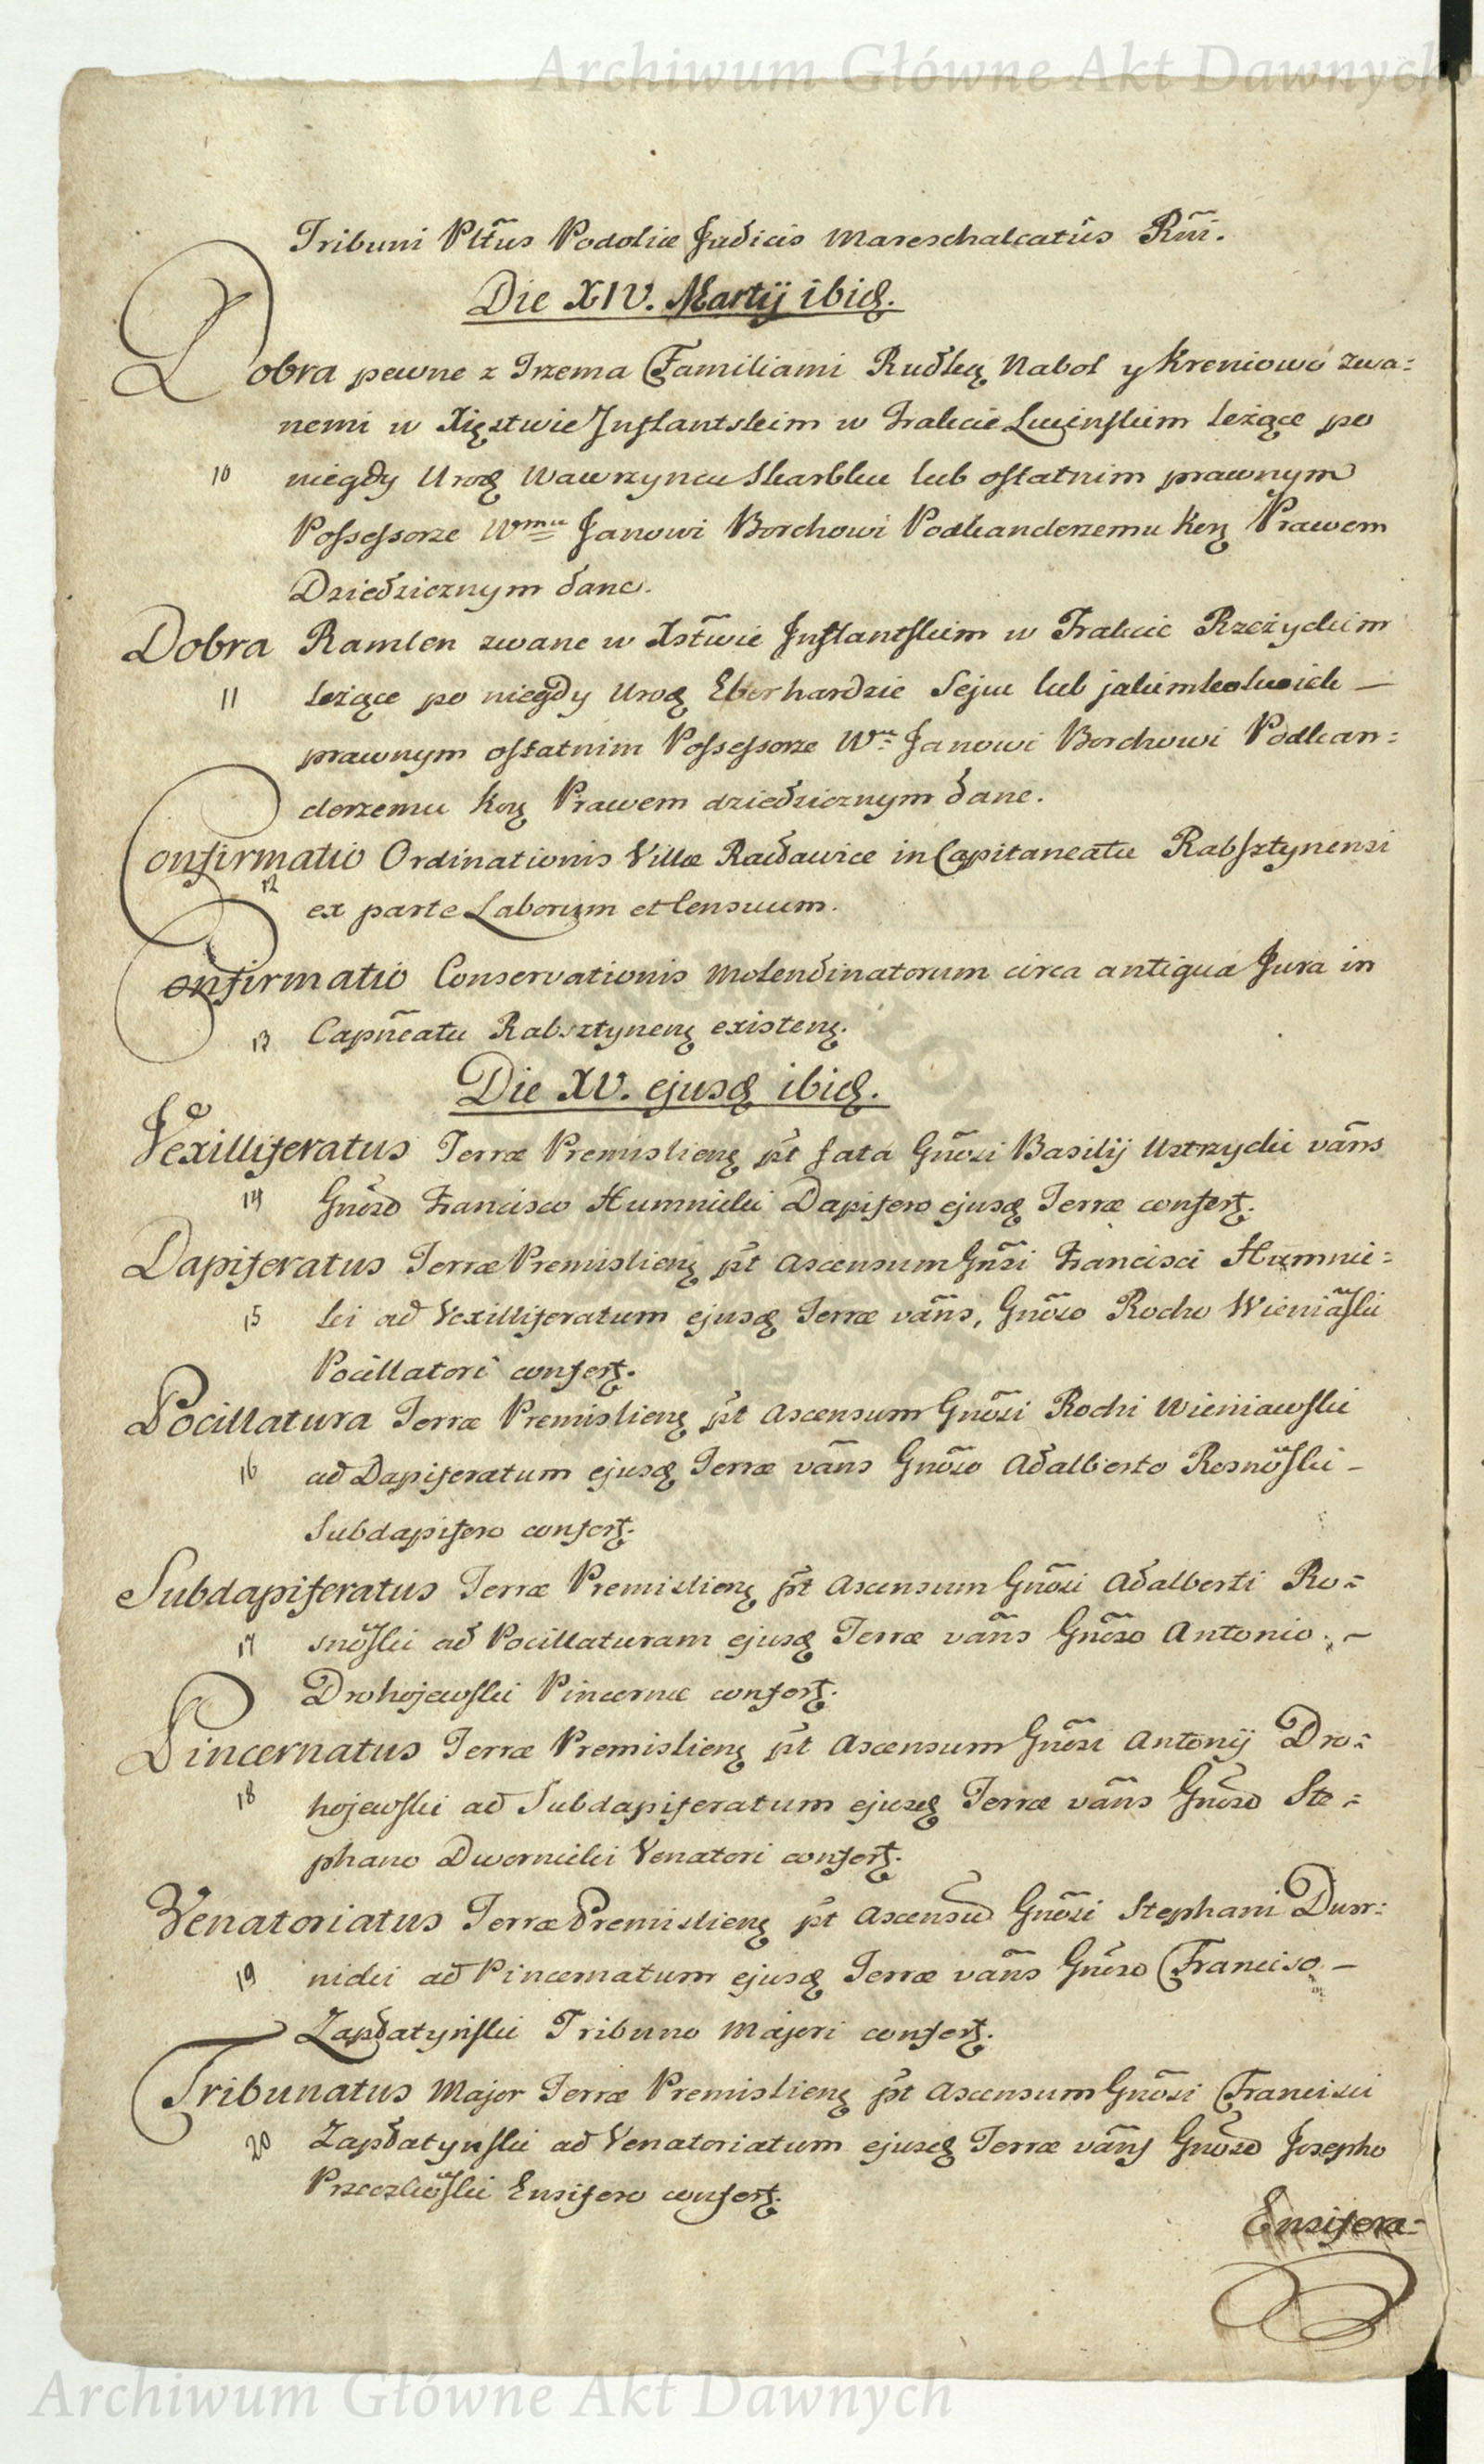 Archiwum Główne Akt Dawnych
Tribuni Pltũs Podoliæ Judicis Mareschalcatûs Rñi.
Die XIV. Martij ibidꝫ.
Dobra pewne z Trzema Familiami Rudką Nabol y Kreniowo zwa=
nemi w Xięstwie Inflantskim w Trakcie Lucinskim leżące po
10 niegdy Urodꝫ Wawrzyncu Skarbku lub ostatnim prawnym
Possessorze Wmu Janowi Borchowi Podkanclerzemu Korꝫ Prawem
Dziedzicznym dane.
Dobra Ramlen zwane w Xstwie Inflantskim w Trakcie Rzeżyckim
11 leżące po niegdy Urodꝫ Eberhardzie Seju lub jakimkolwiek —
prawnym ostatnim Possessorze Wmu Janowi Borchowi Podkan=
clerzemu Korꝫ Prawem dziedzicznym dane.
Confirmatio Ordinationis Villæ Racławice in Capitaneatu Rabsztynensi
12 ex parte Laborum et Censuum.
Confirmatio Conservationis Molendinatorum circa antiqua Jura in
13 Capñeatu Rabsztynenꝫ existenꝫ.
Die XV. ejusdꝫ ibidꝫ.
Vexilliferatus Terræ Premislienꝫ p̃t fata Gñosi Basilij Ustrzycki vãns
14 Gñoso Francisco Humnicki Dapifero ejusdꝫ Terræ confertꝫ.
Dapiferatus Terræ Premislienꝫ p̃t Ascensum Gñsi Francisci Humnic=
15 ki ad Vexilliferatum ejusdꝫ Terræ vãns, Gñoso Rocho Wieniãski
Pocillatori confertꝫ.
Pocillatura Terræ Premislienꝫ p̃t Ascensum Gñosi Rochi Wieniawski
16 ad Dapiferatum ejusdꝫ Terræ vãns Gñoso Adalberto Rosnõski —
Subdapifero confertꝫ.
Subdapiferatus Terræ Premislienꝫ p̃t Ascensum Gñosi Adalberti Ro=
17 snõski ad Pocillaturam ejusdꝫ Terræ vãns Gñoso Antonio —
Drohojewski Pincernæ confertꝫ.
Pincernatus Terræ Premislienꝫ p̃t Ascensum Gñosi Antonij Dro=
18 hojewski ad Subdapiferatum ejusdꝫ Terræ vãns Gñoso Ste=
phano Dwernicki Venatori confertꝫ.
Venatoriatus Terræ Premislienꝫ p̃t Ascensũ Gñosi Stephani Dwer=
19 nicki ad Pincernatum ejusdꝫ Terræ vãns Gñoso Francisco —
Zapdatyński Tribuno Majori confertꝫ.
Tribunatus Major Terræ Premislienꝫ p̃t Ascensum Gñosi Francisci
20 Zapdatynski ad Venatoriatum ejusdꝫ Terræ vãns Gñoso Josepho
Przeczkõski Ensifero confertꝫ.
Ensifera=
Archiwum Główne Akt Dawnych